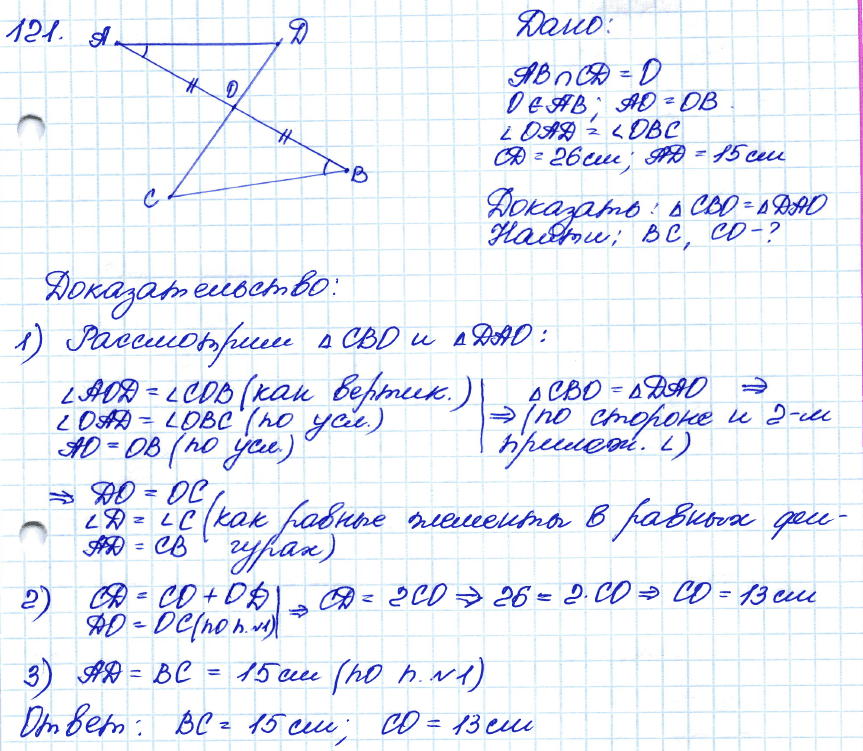 121.
A
D
O
B
C
Дано:
AB∩CD = O
O∈AB; AO = OB.
∠OAD = ∠OBC
CD = 26см; AD = 15см
Доказать: △CBO = △DAO
Найти; BC, CO-?
Доказательство:
1) Рассмотрим △CBO и △DAO:
∠AOD = ∠COB (как вертик.)
∠OAD = ∠OBC (по усл.)
AO = OB (по усл.)
△CBO = △DAO ⇒
⇒ (по стороне и 2-м
прилеж. ∠)
⇒ DO = OC
∠D = ∠C (как равные элементы в равных фи-
AD = CB гурах)
2) CD = CO + OD ⇒ CD = 2CO ⇒ 26 = 2·CO ⇒ CO = 13см
DO = OC (по п.№1)
3) AD = BC = 15см (по п.№1)
Ответ: BC = 15см; CO = 13см